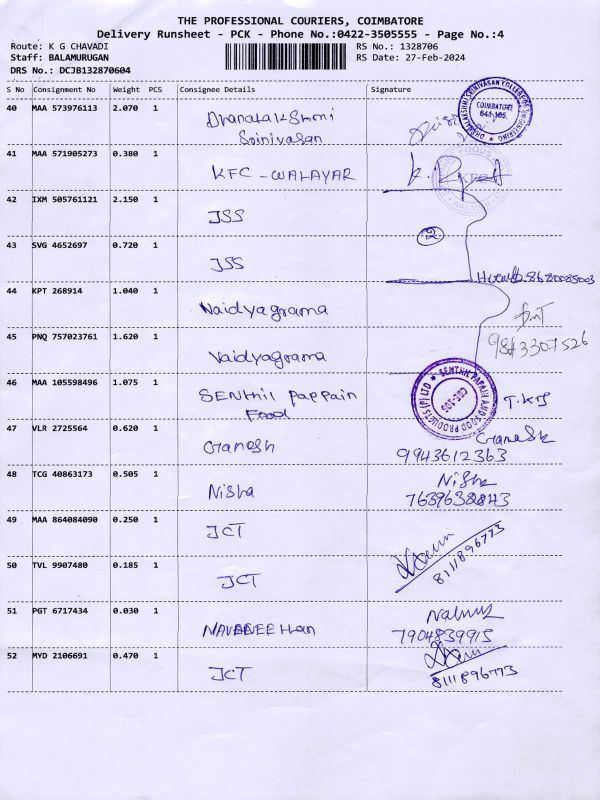 THE PROFESSIONAL COURIERS, COIMBATORE
Delivery Runsheet - PCK - Phone No.:0422-3505555 - Page No.:4
Route: K G CHAVADI RS No.: 1328706
Staff: BALAMURUGAN RS Date: 27-Feb-2024
DRS No.: DCJB132870604
S No Consignment No Weight PCS Consignee Details Signature
40 MAA 573976113 2.070 1 Dhanalakshmi
Srinivasan
COIMBATORE
641 105.
41 MAA 571905273 0.380 1 KFC - WALAYAR
KFC
42 IXM 505761121 2.150 1 JSS
2
43 SVG 4652697 0.720 1 JSS
8680085003
44 KPT 268914 1.040 1 Vaidyagrama
9843307526
45 PNQ 757023761 1.620 1 Vaidyagrama
46 MAA 105598496 1.075 1 SENthil pappain
Food
SENTHIL PAPAIN AND FOOD PRODUCTS (P) LTD
47 VLR 2725564 0.620 1 Ganesh Ganesh
9943612363
48 TCG 40863173 0.505 1 Nisha Nisha
7639632843
49 MAA 864084090 0.250 1 JCT
8111896773
50 TVL 9907480 0.185 1 JCT
51 PGT 6717434 0.030 1
7904839915
52 MYD 2106691 0.470 1 JCT
8111896773